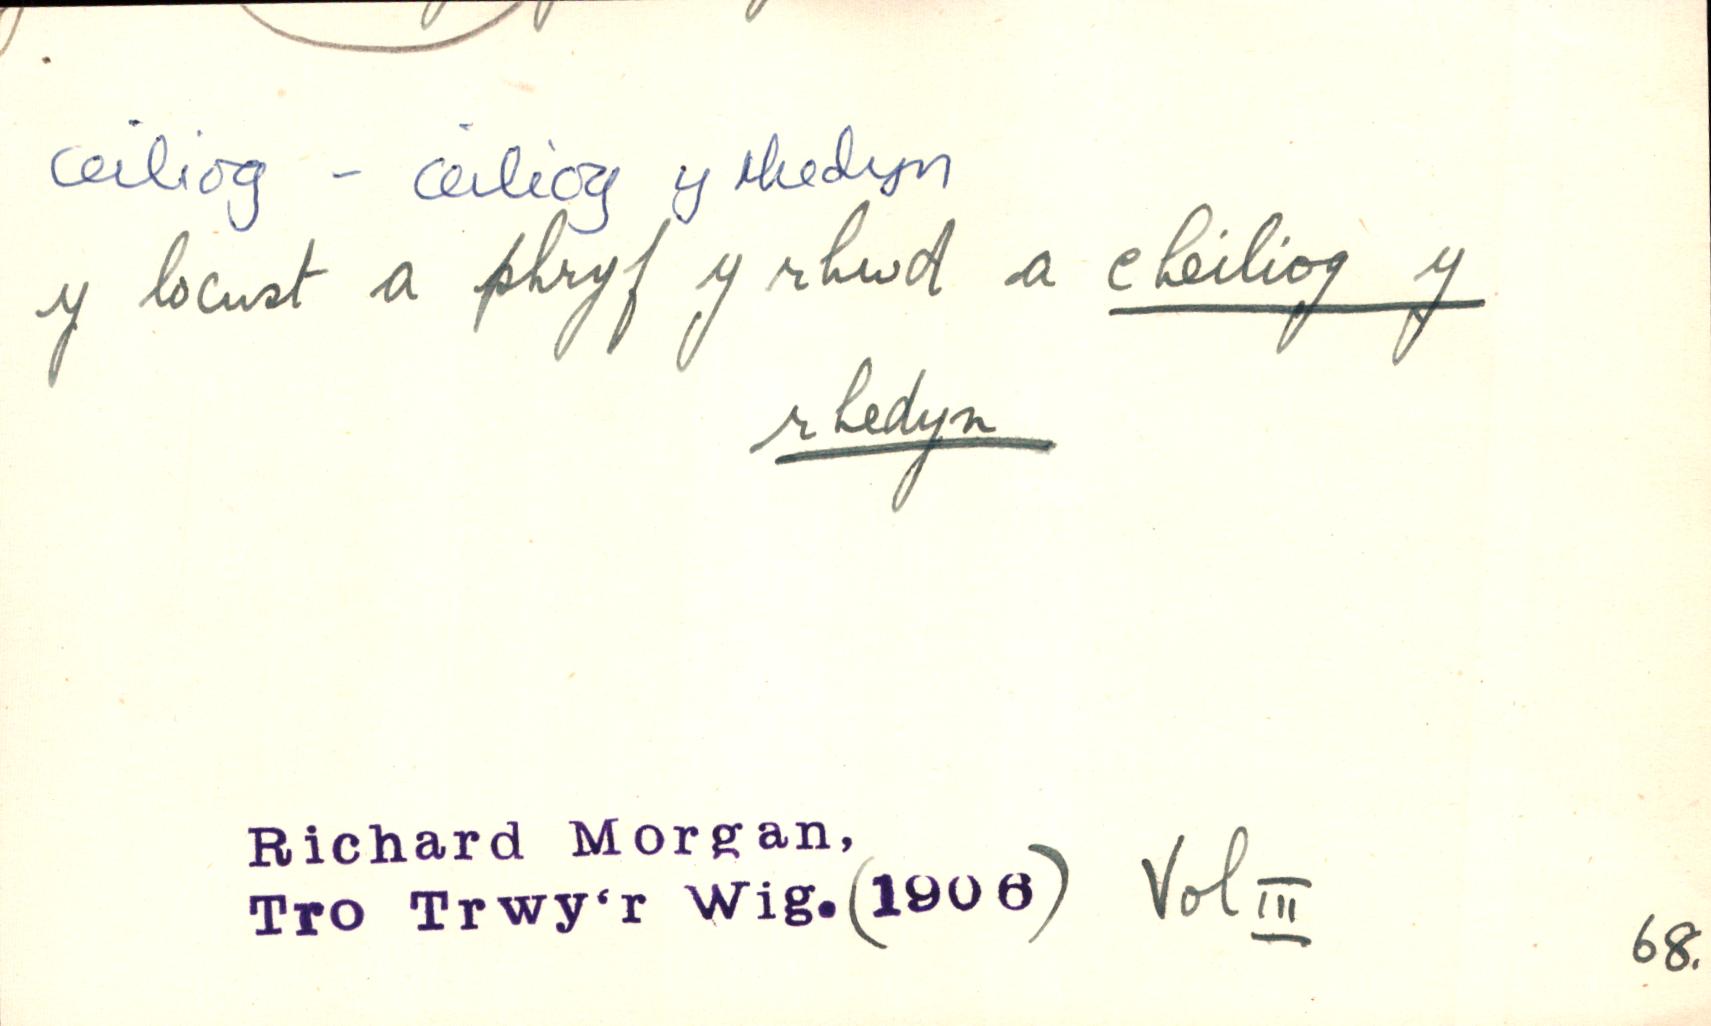 ceiliog - ceiliog y rhedyn
y locust a phryf y rhwd a cheiliog y
rhedyn
Richard Morgan,
Tro Trwy'r Wig. (1906) Vol III
68.